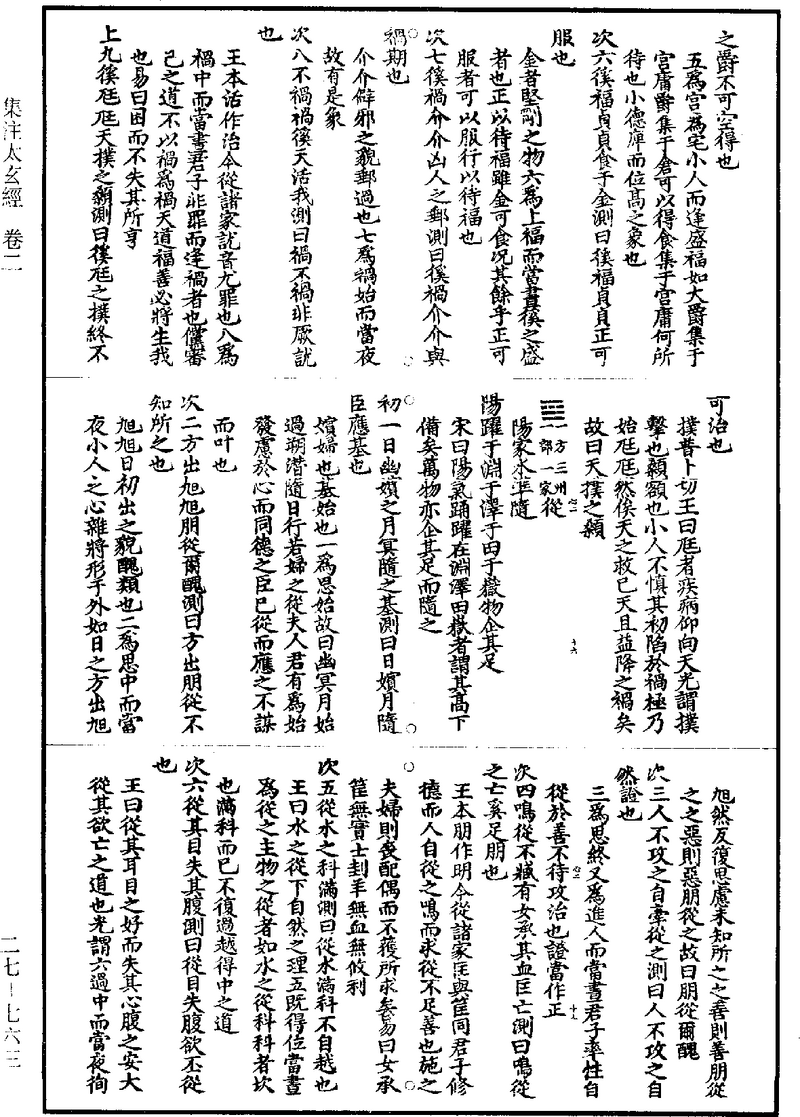 集注太玄經 卷二
之爵不可空得也
五爲宮爲宅小人而逢盛福如大爵集于
宮庸爵集于倉可以得食集于宮庸何所
待也小德庳而位高之象也
次六徯福貞貞食于金測曰徯福貞貞正可
服也
金者堅剛之物六爲上福而當晝徯之盛
者也正以待福雖金可食況其餘乎正可
服者可以服行以待福也
次七徯禍介介凶人之郵測曰徯禍介介與
禍期也
介介僻邪之貌郵過也七爲禍始而當夜
故有是象
次八不禍禍徯天活我測曰禍不禍非厥訧
也
王本活作治今從諸家訧音尤罪也八爲
禍中而當晝君子非罪而逢禍者也儻審
己之道不以禍爲禍天道福善必將生我
也易曰困而不失其所亨
上九徯尫尫天撲之顙測曰徯尫之撲終不
可治也
撲普卜切王曰尫者疾病仰向天光謂撲
擊也顙額也小人不慎其初陷於禍極乃
始尫尫然俟天之救已天且益降之禍矣
故曰天撲之顙
一方三州一部一家從
陽家水準隨
陽躍于淵于澤于田于嶽物企其足
宋曰陽氣踊躍在淵澤田嶽者謂其高下
備矣萬物亦企其足而隨之
初一日幽嬪之月冥隨之基測曰日嬪月隨
臣應基也
嬪婦也基始也一爲思始故曰幽冥月始
過朔潛隨日行若婦之從夫人君有爲始
發慮於心而同德之臣已從而應之不謀
而叶也
次二方出旭旭朋從爾醜測曰方出朋從不
知所之也
旭旭日初出之貌醜類也二爲思中而當
夜小人之心雜將形于外如日之方出旭
旭然反復思慮未知所之之善則善朋從
之之惡則惡朋從之故曰朋從爾醜
次三人不攻之自牽從之測曰人不攻之自
然證也
三爲思終又爲進人而當晝君子率性自
從於善不待攻治也證當作正
次四鳴從不臧有女承其血匡亡測曰鳴從
之亡奚足朋也
王本朋作明今從諸家匡與筐同君子修
德而人自從之鳴而求從不足善也施之
夫婦則喪配偶而不獲所求矣易曰女承
筐無實士刲羊無血無攸利
次五從水之科滿測曰從水滿科不自越也
王曰水之從下自然之理五既得位當晝
爲從之主物之從者如水之從科科者坎
也滿科而已不復過越得中之道
次六從其目失其腹測曰從目失腹欲丕從
也
王曰從其耳目之好而失其心腹之安大
從其欲亡之道也光謂六過中而當夜徇
二七—七六三